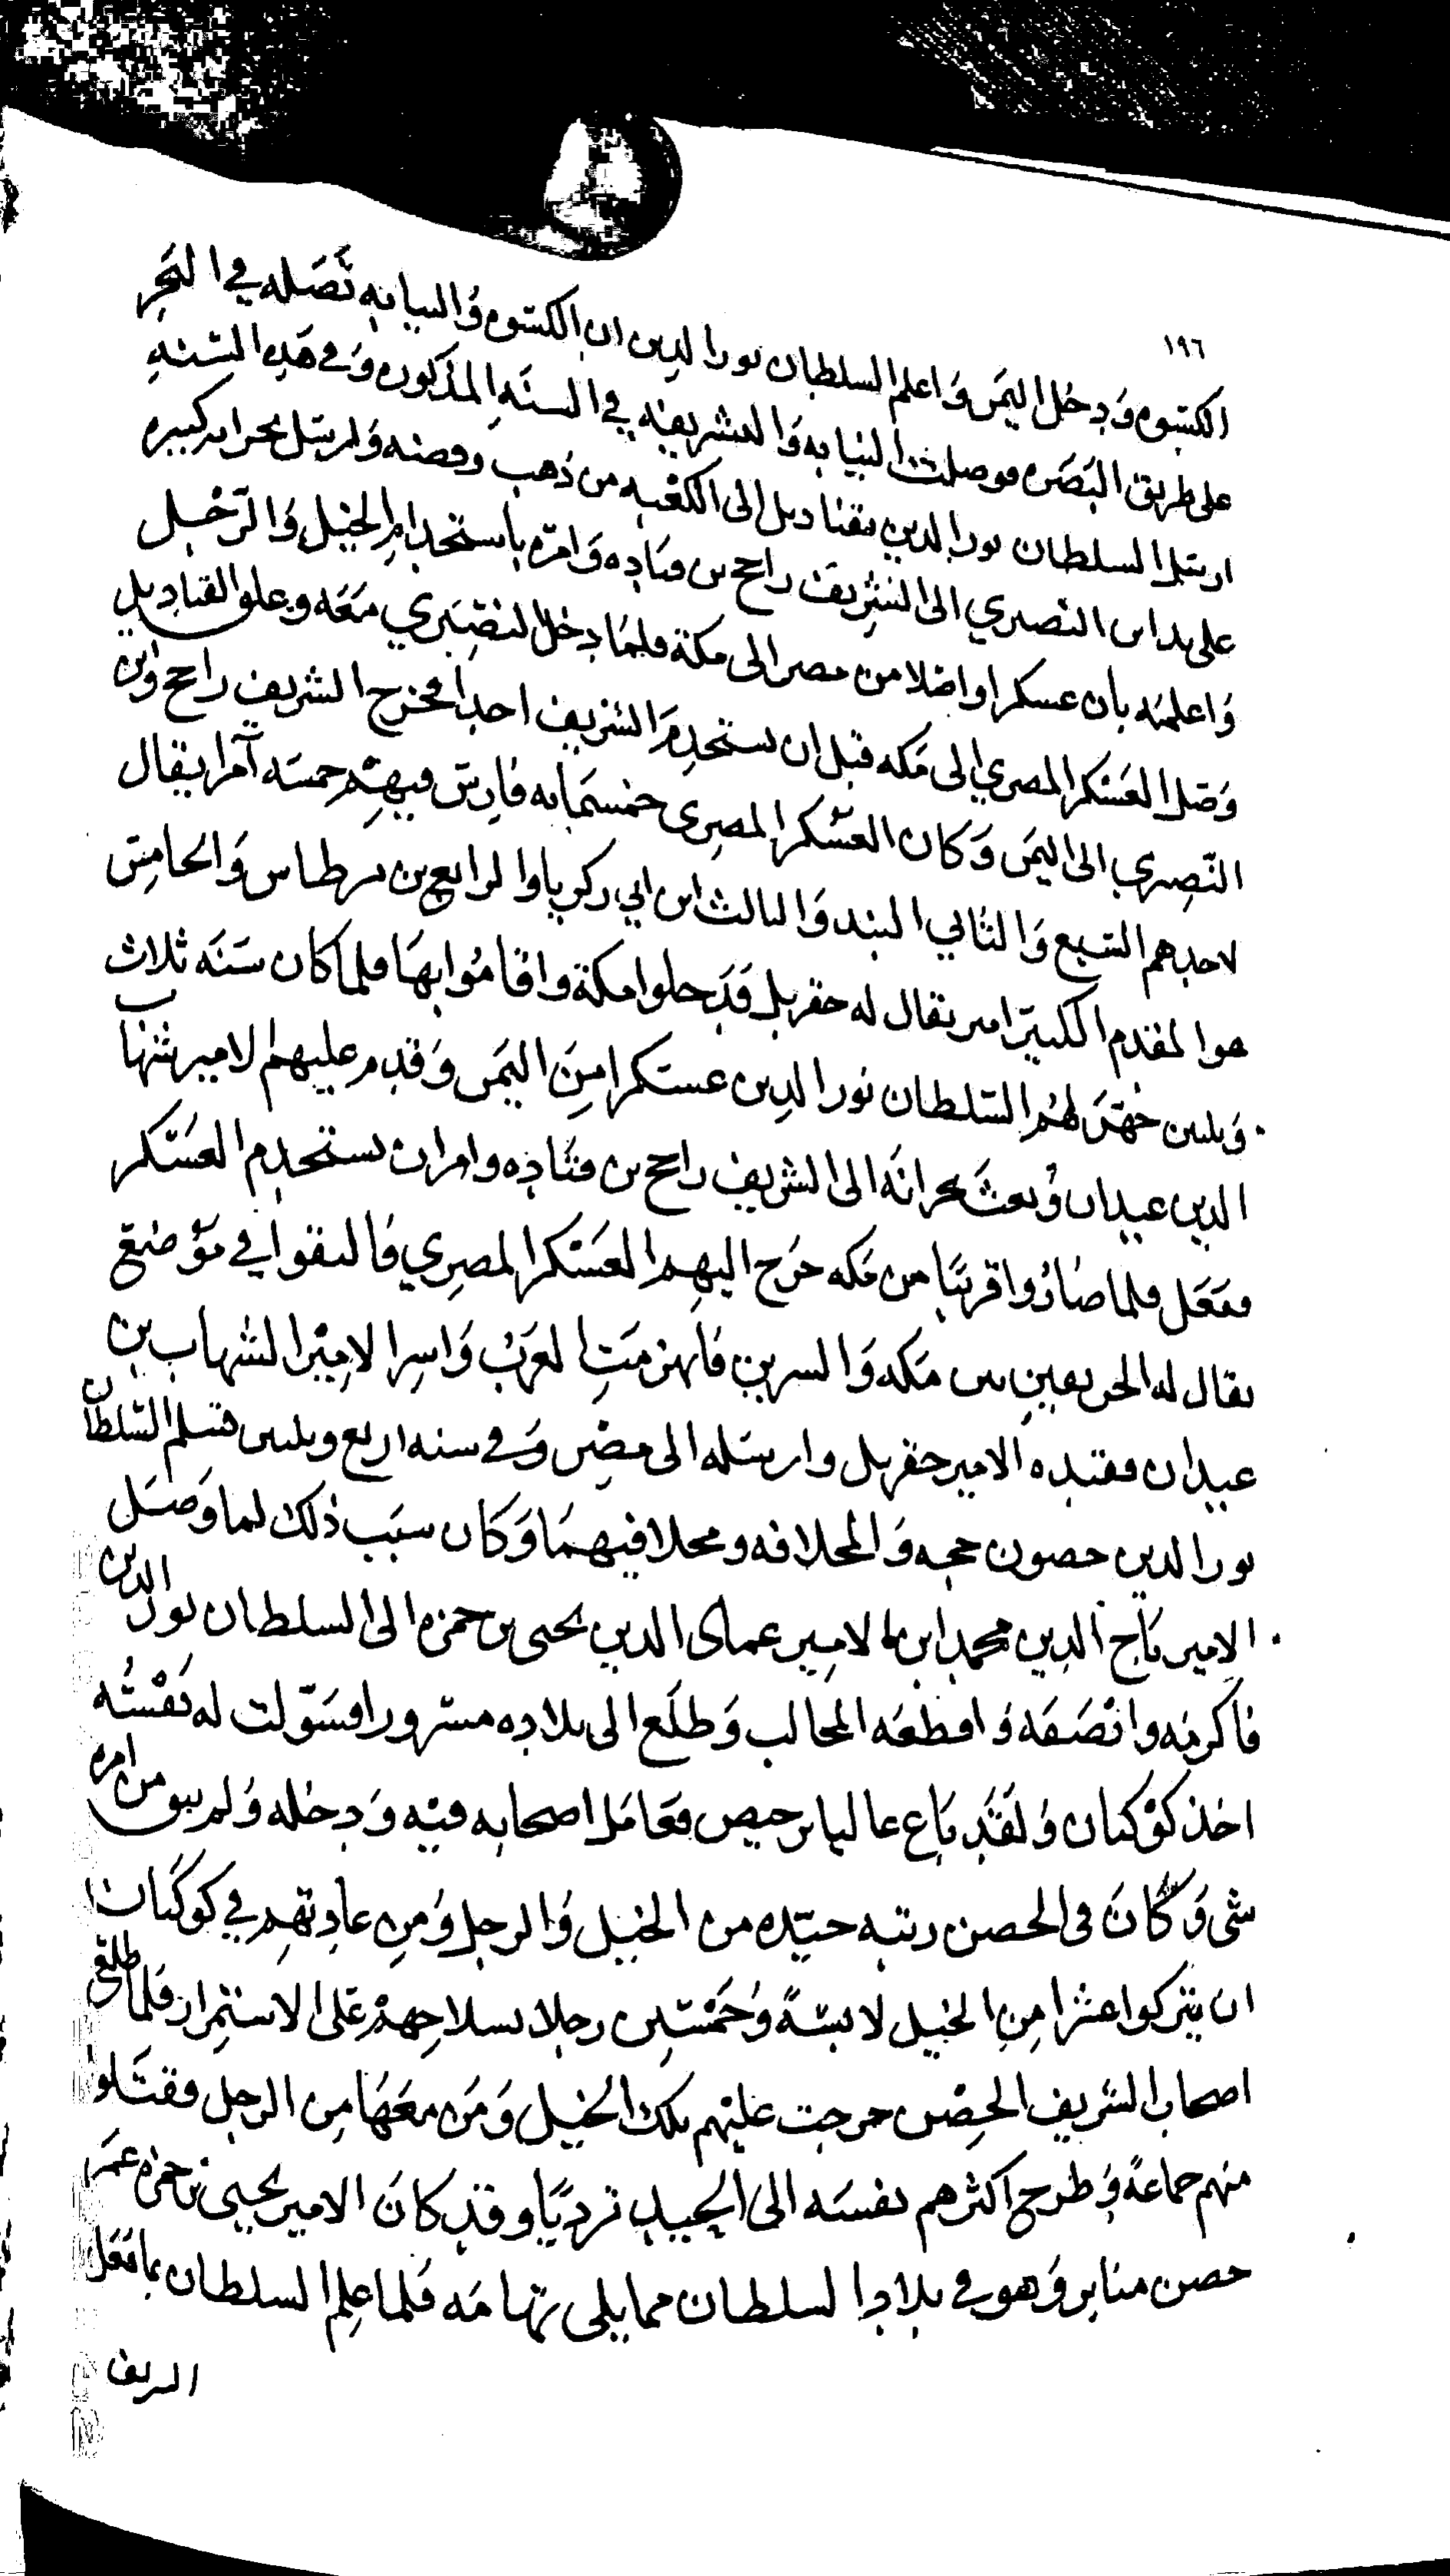 ١٩٦
الكسوه ودخل اليمن واعلم السلطان نور الدين ان الكسوه والنيابه تصله في البحر
على طريق البصره فوصلت النيابه والتشريفه في السنه المذكوره وفي هذه السنه
ارسل السلطان نور الدين بقناديل الى الكعبه من ذهب وفضه وارسل بخزانه كبيره
على يد ابن النصري الى الشريف راجح بن قتاده وامره باستخدام الخيل والرجل
واعلمه بان عسكرا واصلا من مصر الى مكة فلما دخل النصيري معه وعلق القناديل
وصل العسكر المصري الى مكه قبل ان يستخدم الشريف احدا فخرج الشريف راجح وابن
النصري الى اليمن وكان العسكر المصري خمسمايه فارس فيهم خمسه آمرا يقال
لاحدهم السبع والثاني البند والثالث ابن ابي زكريا والرابع بن برطاس والخامس
هو المقدم الكبير امير يقال له جفريل فدخلوا مكة واقاموا بها فلما كان سنه ثلاث
وثلثين جهز لهم السلطان نور الدين عسكرا من اليمن وقدم عليهم الامير شهاب
الدين عبدان وبعث بخزانه الى الشريف راجح بن قتاده وامر ان يستخدم العسكر
ففعل فلما صاروا قريبا من مكه خرج اليهم العسكر المصري فالتقوا في موضع
يقال له الخريقين بين مكه والسرين فانهزمت العرب واسر الامير الشهاب بن
عبدان فقيده الامير جفريل وارسله الى مصر وفي سنه اربع وثلثين تسلم السلطان
نور الدين حصون حجه والمخلافه ومخلافيهما وكان سبب ذلك لما وصل
الامير تاج الدين محمد ابن الامير عماد الدين يحيى بن حمزه الى السلطان نور الدين
فاكرمه وانصفه واقطعه المحالب وطلع الى بلاده مسرورا فسولت له نفسه
اخذ كوكبان ولقد باع غاليا برخيص فعامل اصحابه فيه ودخله ولم يبق من امره
شي وكان في الحصن رتبه جيده من الخيل والرجل ومن عادتهم في كوكبان
ان يتركوا عشرا من الخيل لابسة وخمسين رجلا بسلاحهم على الاستمرار فلما طلع
اصحاب الشريف الحصن خرجت عليهم تلك الخيل ومن معها من الرجل فقتلوا
منهم جماعة وطرح اكثرهم نفسه الى الحيد ترديا وقد كان الامير يحيى بن حمزه عمر
حصن منابر وهو في بلاد السلطان مما يلي تهامه فلما علم السلطان بما فعل
الشريف